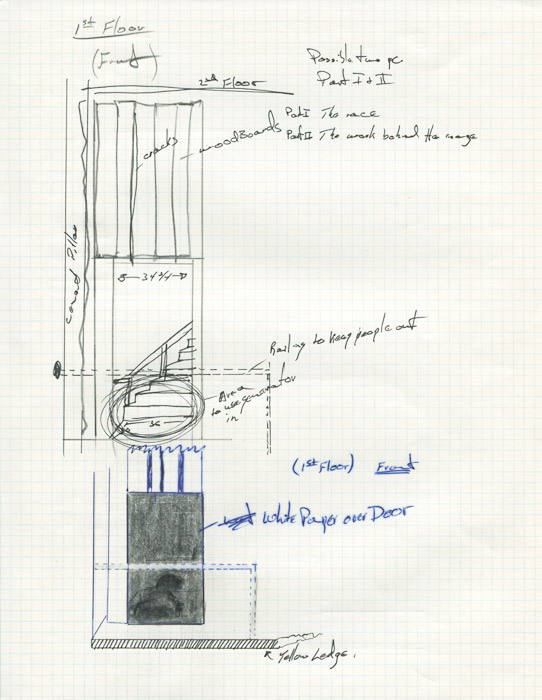 1st Floor
(Front)
2nd Floor
Possible two pc
Part I & II
Part I The race
Part II The work behind the image
wood Boards
cracks
Coved Pillar
34 3/4
Railing to keep people out
Area
to use
in
36
(1st Floor) Front
White Paper over Door
Yellow Ledge.